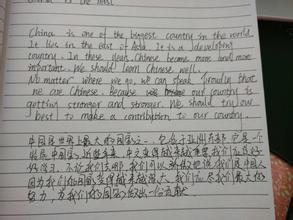 China is one of the biggest country in the world
It lies in the east of Asia. It is a developing
country. In these days, Chinese become more and more
important. We should learn Chinese well.
No matter where we go, we can speak proudly that
we are Chinese. Because our country is
getting stronger and stronger. We should try our
best to make a contribution to our country.
中国是世界上最大的国家之一。它位于亚洲东部 它是一个
发展中国家。
我们是中国人
因为我们的国家变得越来越强大。我们应尽我们最大的
努力，为我们的国家做出一份贡献